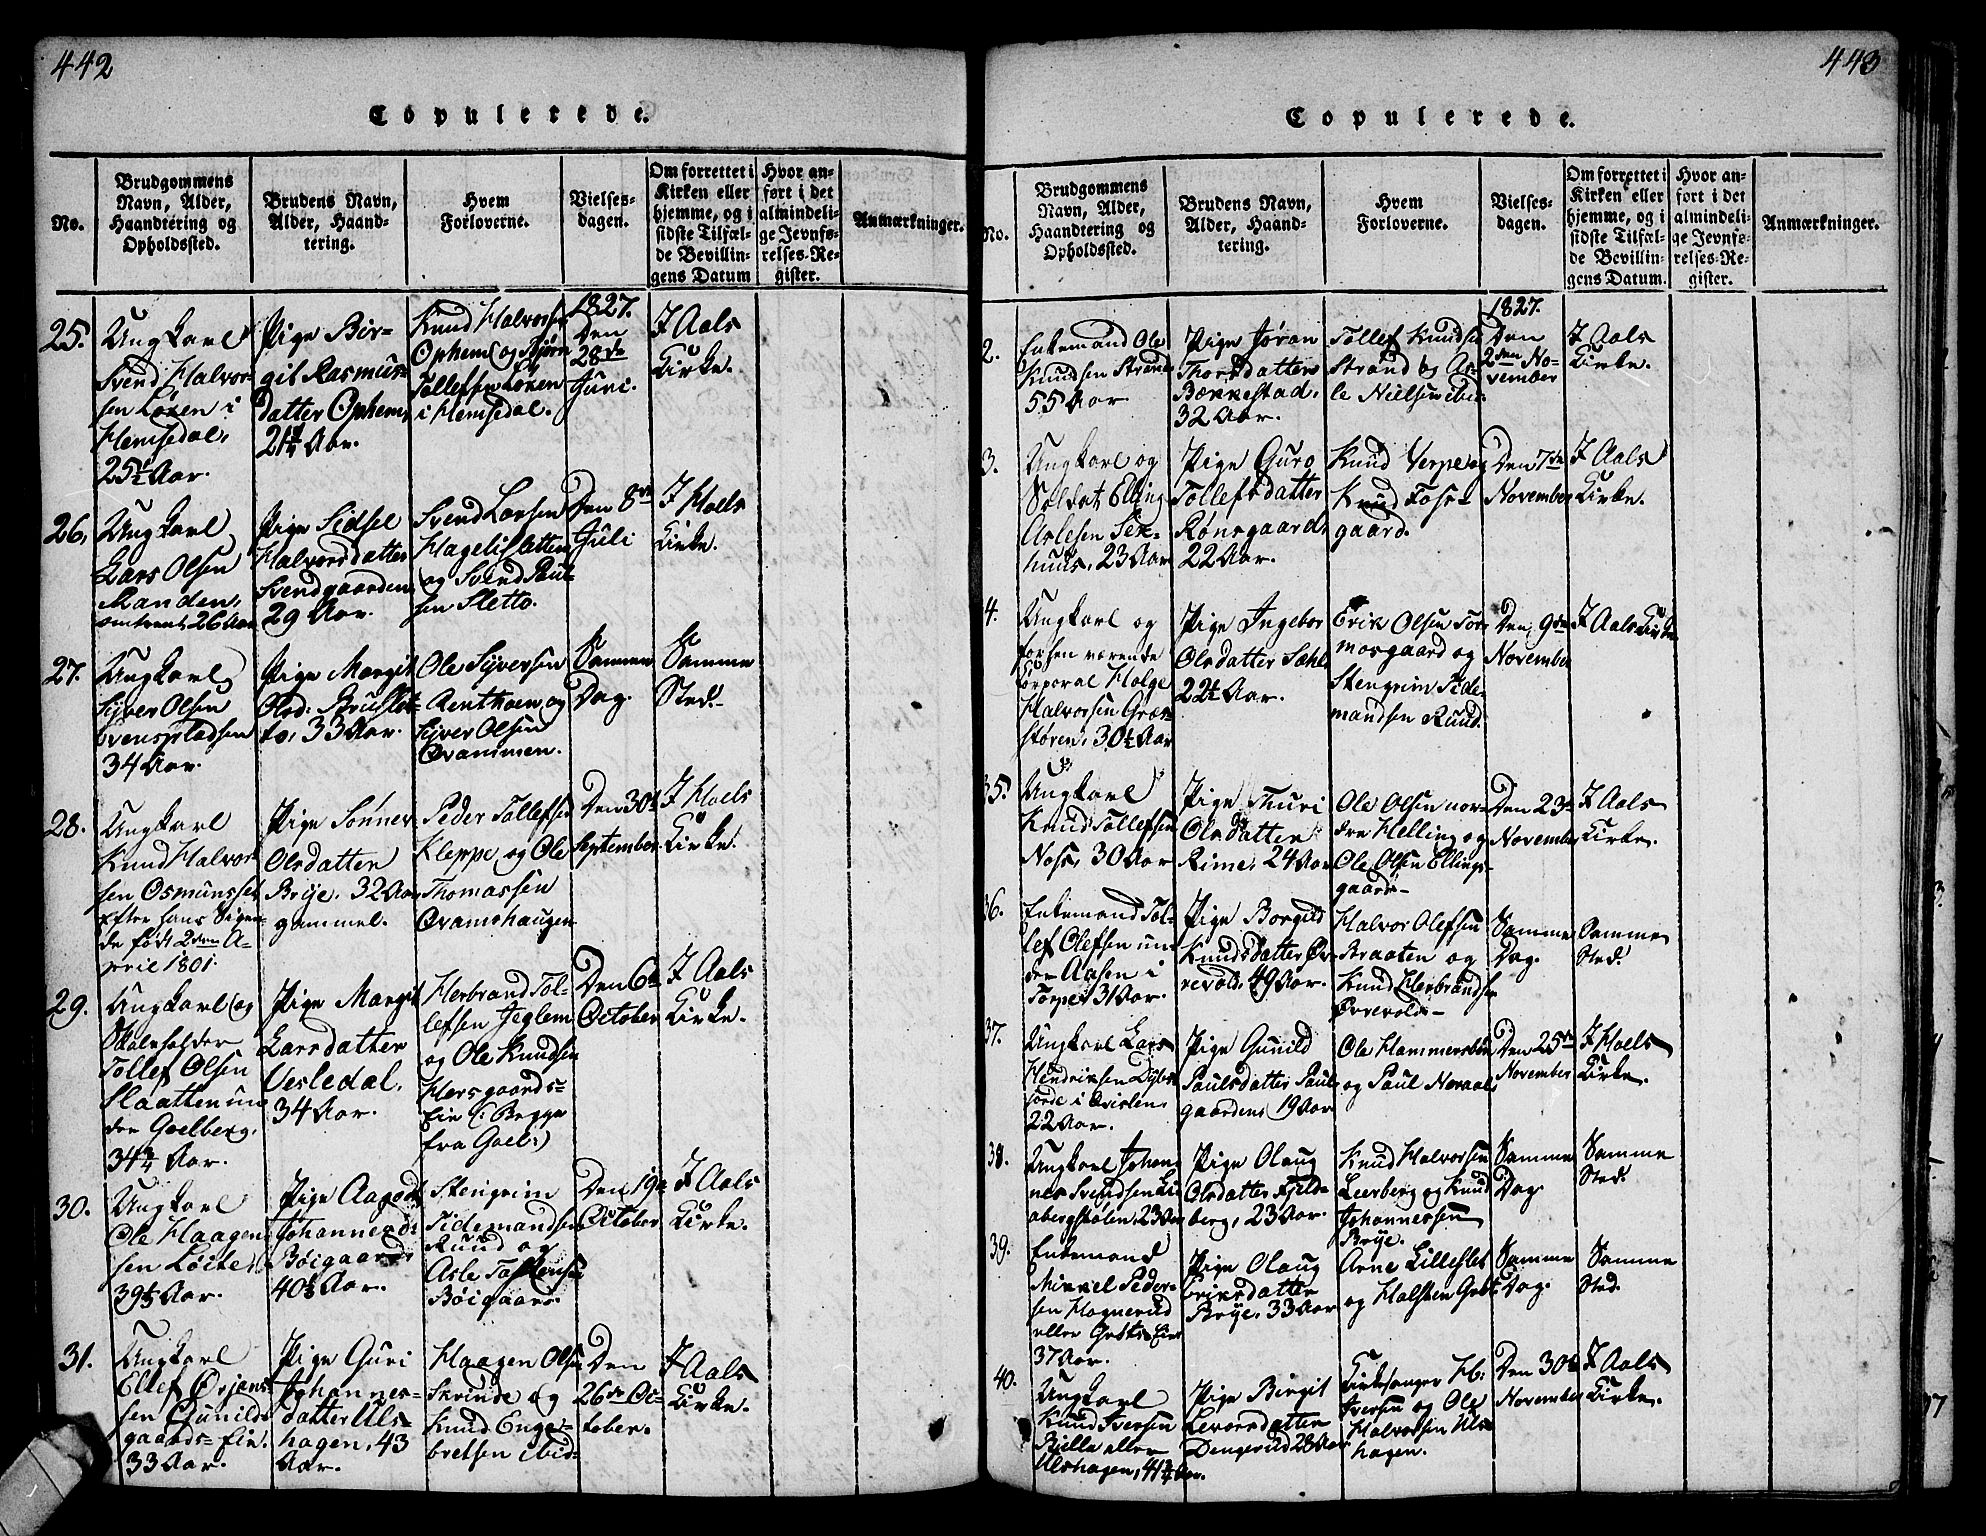 442
Copulerede.
No.
Brudgommens
Navn, Alder,
Haandtering og
Opholdssted.
Brudens Navn,
Alder, Haand-
tering.
Hvem
Forloverne.
Vielses-
dagen.
Om forrettet i
Kirken eller
hjemme, og i
sidste Tilfæl-
de Bevillin-
gens Datum
Hvor an-
ført i det
almindeli-
ge Jevnfø-
relses-Re-
gister.
Anmærkninger.
25.
Ungkarl
Svend Halvor-
sen Løken i
Hemsedal,
25½ Aar.
Pige Bir-
git Rasmus-
datter Ophem,
Aar.
Knud Halvorsen
Ophem og Bjørn
Tollefsen Løken
i Hemsedal.
1827.
Den
28de
Juni.
I Aals
Kirke.
26.
Ungkarl
Lars Olsen
Manden,
omtrent 26 Aar
Pige Sidsel
Halvorsdatter
Svendgaarden,
29 Aar.
Svend Larsen
Hagelisletten
og Svend Paul-
sen Sletto.
Den 8de
Juli
I Hoels
Kirke.
27.
Ungkarl
Syver Olsen
Evenspladsen
34 Aar.
Pige Margit
Olsd: Bruslet-
to, 33 Aar.
Ole Syversen
Renthoen og
Syver Olsen
Qvammen.
Samme
Dag.
Samme
Sted.
28.
Ungkarl
Knud Halvor-
sen Osmundsset
Efter hans Sigen-
de født 2den A-
pril 1801.
Pige Sønnev
Olsdatter
Brye, 32 Aar
gammel.
Peder Tollefsen
Kleppe og Ole
Thomassen
Qvamshaugen
Den 30te
September.
I Hoels
Kirke.
29.
Ungkarl og
Skoleholder
Tollef Olsen
Slaatten un-
der Goelberg,
34¾ Aar.
Pige Margit
Larsdatter
Vesledal.
34 Aar.
Herbrand Tol-
lefsen Jeglem
og Ole Knudsen
Hersgaards-
Eie (: Begge
fra Goel:)
Den 6te
October
I Aals
Kirke.
30.
Ungkarl
Ole Haagen-
sen Løite,
Aar.
Pige Aagot
Johannesd:
Bøigaard,
Aar.
Stengrim
Tidemandsen
Ruud og
Asle Torstensen
Bøigaard.
Den 19de
October
I Aals
Kirke.
31.
Ungkarl
Ellef Ørjans-
sen Gunilds-
gaards-Eie.
33 Aar.
Pige Guri
Johannes-
datter Uls-
hagen, 43
Aar.
Haagen Olsen
Skrinde og
Knud Enge-
bretsen ibid-
Den
26de Oc-
tober.
I Aals
Kirke.
443
Copulerede.
No.
Brudgommens
Navn, Alder,
Haandtering og
Opholdssted.
Brudens Navn,
Alder, Haand-
tering.
Hvem
Forloverne.
Vielses-
dagen.
Om forrettet i
Kirken eller
hjemme, og i
sidste Tilfæl-
de Bevillin-
gens Datum.
Hvor an-
ført i det
almindeli-
ge Jevnfø-
relses-Re-
gister.
Anmærkninger.
2.
Enkemand Ole
Knudsen Strand
55 Aar
Pige Jøran
Thorsdatter
Bækkestad.
32 Aar.
Tollef Knudsen
Strand og As-
le Nielsen ibid.
1827.
Den
2den No-
vember
I Aals
Kirke.
3.
Ungkarl og
Soldat Elling
Aslesen Sek-
huus, 23 Aar
Pige Guro
Tollefsdatter
Rønsgaard,
22 Aar.
Knud Verpe og
Knud Tors-
gaard.
Den 7de
November
I Aals
Kirke.
4.
Ungkarl og
forhen værende
Corporal Holge
Halvorsen Græs-
støren, 30½ Aar
Pige Ingebor
Olsdatter Sæhle
22½ Aar.
Erik Olsen Tor-
mosgaard og
Stengrim Tide-
mandsen Ruud.
Den 9de
November
I Aals Kirke
35.
Ungkarl
Knud Tollefsen
Nos, 30 Aar
Pige Thuri
Olsdatter
Rime, 24 Aar
Ole Olsen nor-
dre Helling og
Ole Olsen Ellings-
gaard-
Den 23de
November
I Aals
Kirke.
36.
Enkemand Tol-
lef Olefsen un-
der Aasen i
Torpe, 31 Aar.
Pige Borgild
Knudsdatter Øv-
revold, 49 Aar.
Halvor Olefsen
Braaten og
Knud Herbrandsen
Øvrevold-
Samme
Dag.
Samme
Sted.
37.
Ungkarl Lars
Hendriksen
i Qvislen,
22 Aar.
Pige Gunild
Paulsdatter Paul-
gaarden, 19 Aar
Ole Hammersbøn
og Paul Noraal,
Den 25de
November
I Hoels
Kirke.
38.
Ungkarl Johan-
nes Svendsen Li-
abergstølen, 23 Aar
Pige Olaug
Olsdatter Fjeld-
berg, 23 Aar.
Knud Halvorsen
Leerberg og Knud
Johannessen
Brye.
Samme
Dag.
Samme
Sted.
39.
Enkemand
Mikkel Peder-
sen Hognerud
eller Grøts Eie
37 Aar.
Pige Olaug
Eriksdatter
Brye, 33 Aar
Arne Lilleslet
og Halsten Grøt.
Samme
Dag.
Samme
Sted.
40.
Ungkarl
Knud Iversen
Bielle eller
Ulshagen, 41¾ Aar.
Pige Birgit
Levorsdatter
Dengerud 28 Aar
Kirkesanger H:
Iversen og Ole
Halvorsen Uls-
hagen.
Den 30te
November
I Aals
Kirke.